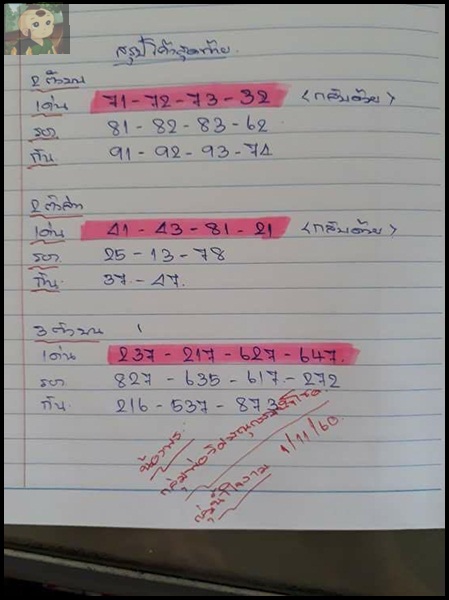 สรุปโค้งสุดท้าย
2 ตัวบน
เด่น 71-72-73-32 <กลับด้วย>
รอง 81-82-83-62
กัน 91-92-93-74
2 ตัวล่าง
เด่น 41-43-81-21 <กลับด้วย>
รอง. 25-13-78
กัน. 37-47.
3 ตัวบน
เด่น 237-217-627-647.
รอง 827-635-617-272
กัน. 216-537-873
น้องพร.
1/11/60.